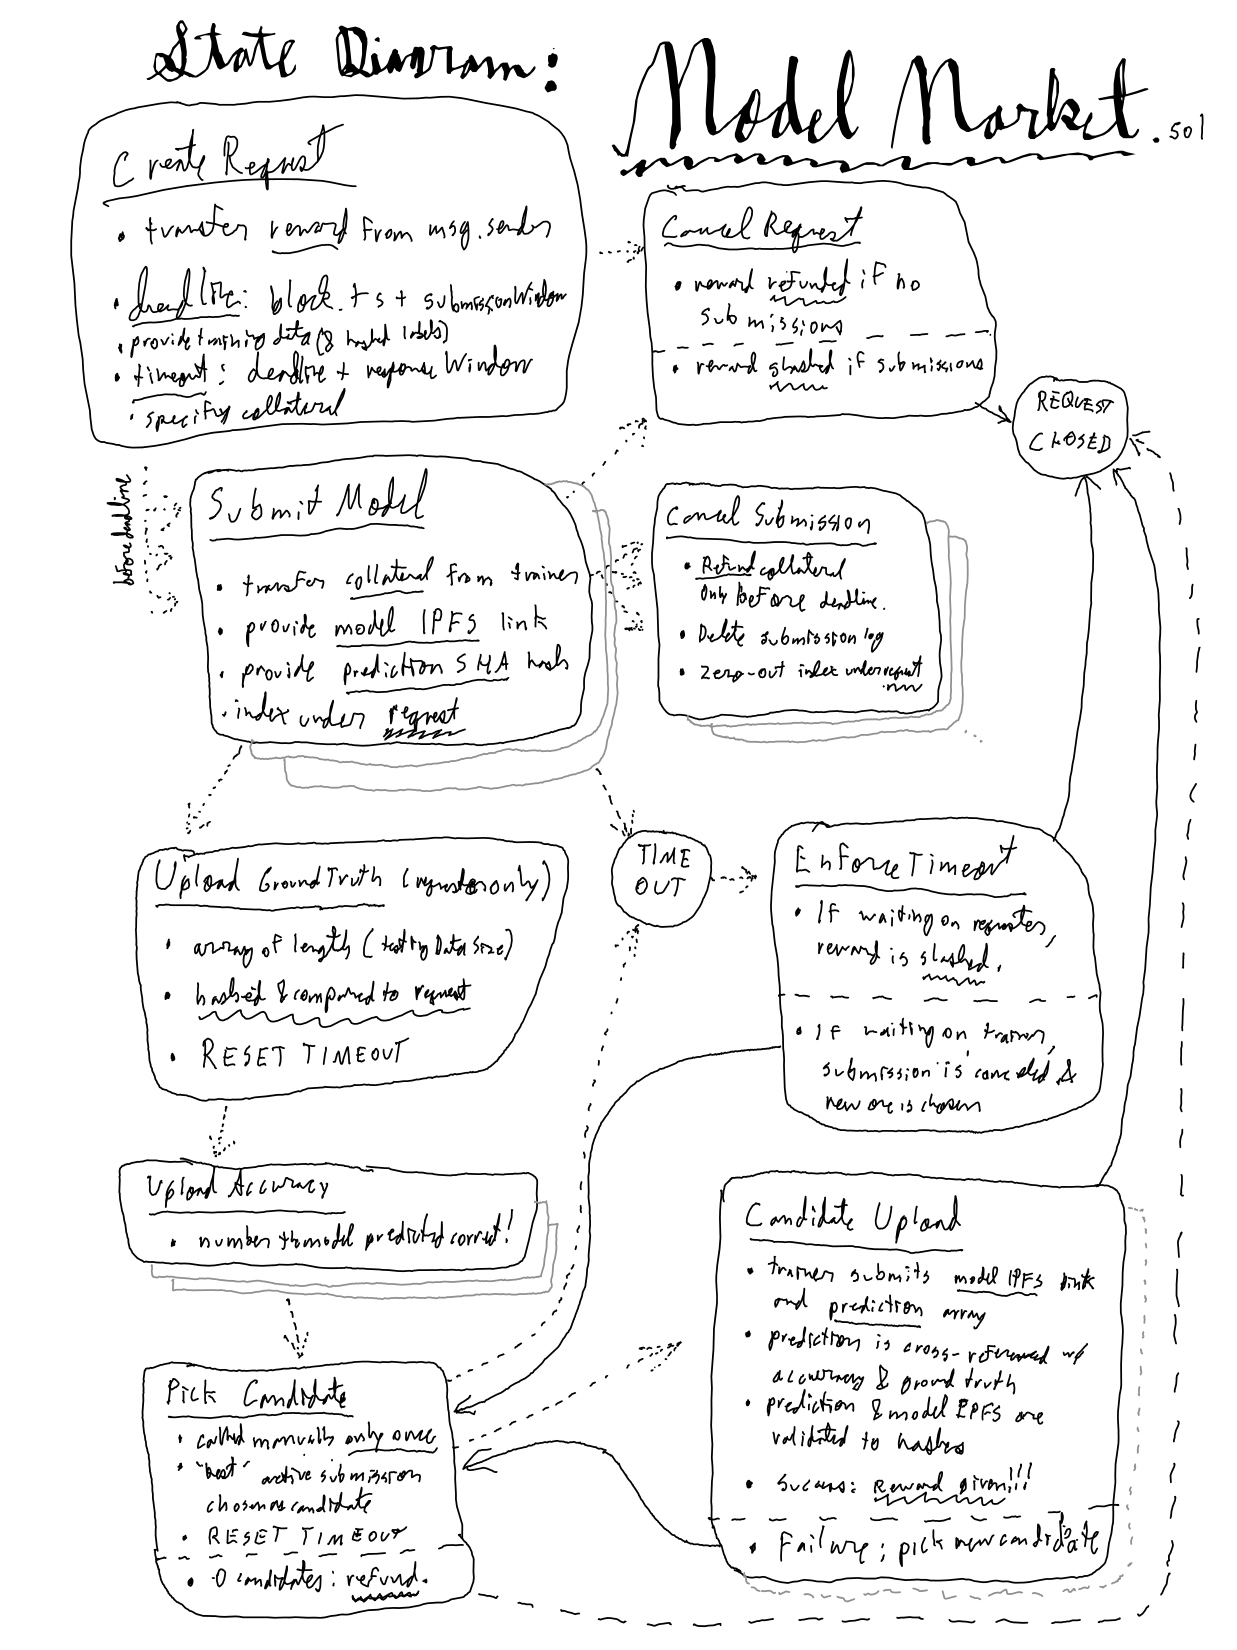 State Diagram:
Model Market.sol
Create Request
• transfer reward from msg.sender
• deadline: block.ts + submissionWindow
• provide training data (& hashed labels)
• timeout: deadline + responseWindow
• specify collateral
Cancel Request
• reward refunded if no
submissions
• reward slashed if submissions
REQUEST
CLOSED
before deadline
Submit Model
• transfer collateral from trainer
• provide model IPFS link
• provide prediction SHA hash
• index under request
Cancel Submission
• Refund collateral
Only before deadline.
• Delete submission log
• Zero-out index under request
TIME
OUT
Upload GroundTruth (requester only)
• array of length (testing Data Size)
• hashed & compared to request
• RESET TIMEOUT
Enforce Timeout
• If waiting on requester,
reward is slashed.
• If waiting on trainer,
submission is canceled &
new one is chosen
Upload Accuracy
• number the model predicted correct!
Candidate Upload
• trainer submits model IPFS link
and prediction array
• prediction is cross-referenced w/
accuracy & ground truth
• prediction & model IPFS are
validated to hashes
• Success: Reward given!!!
• Failure; pick new candidate
Pick Candidate
• called manually only once
• "best" active submission
chosen as candidate
• RESET TIMEOUT
• 0 candidates: refund.